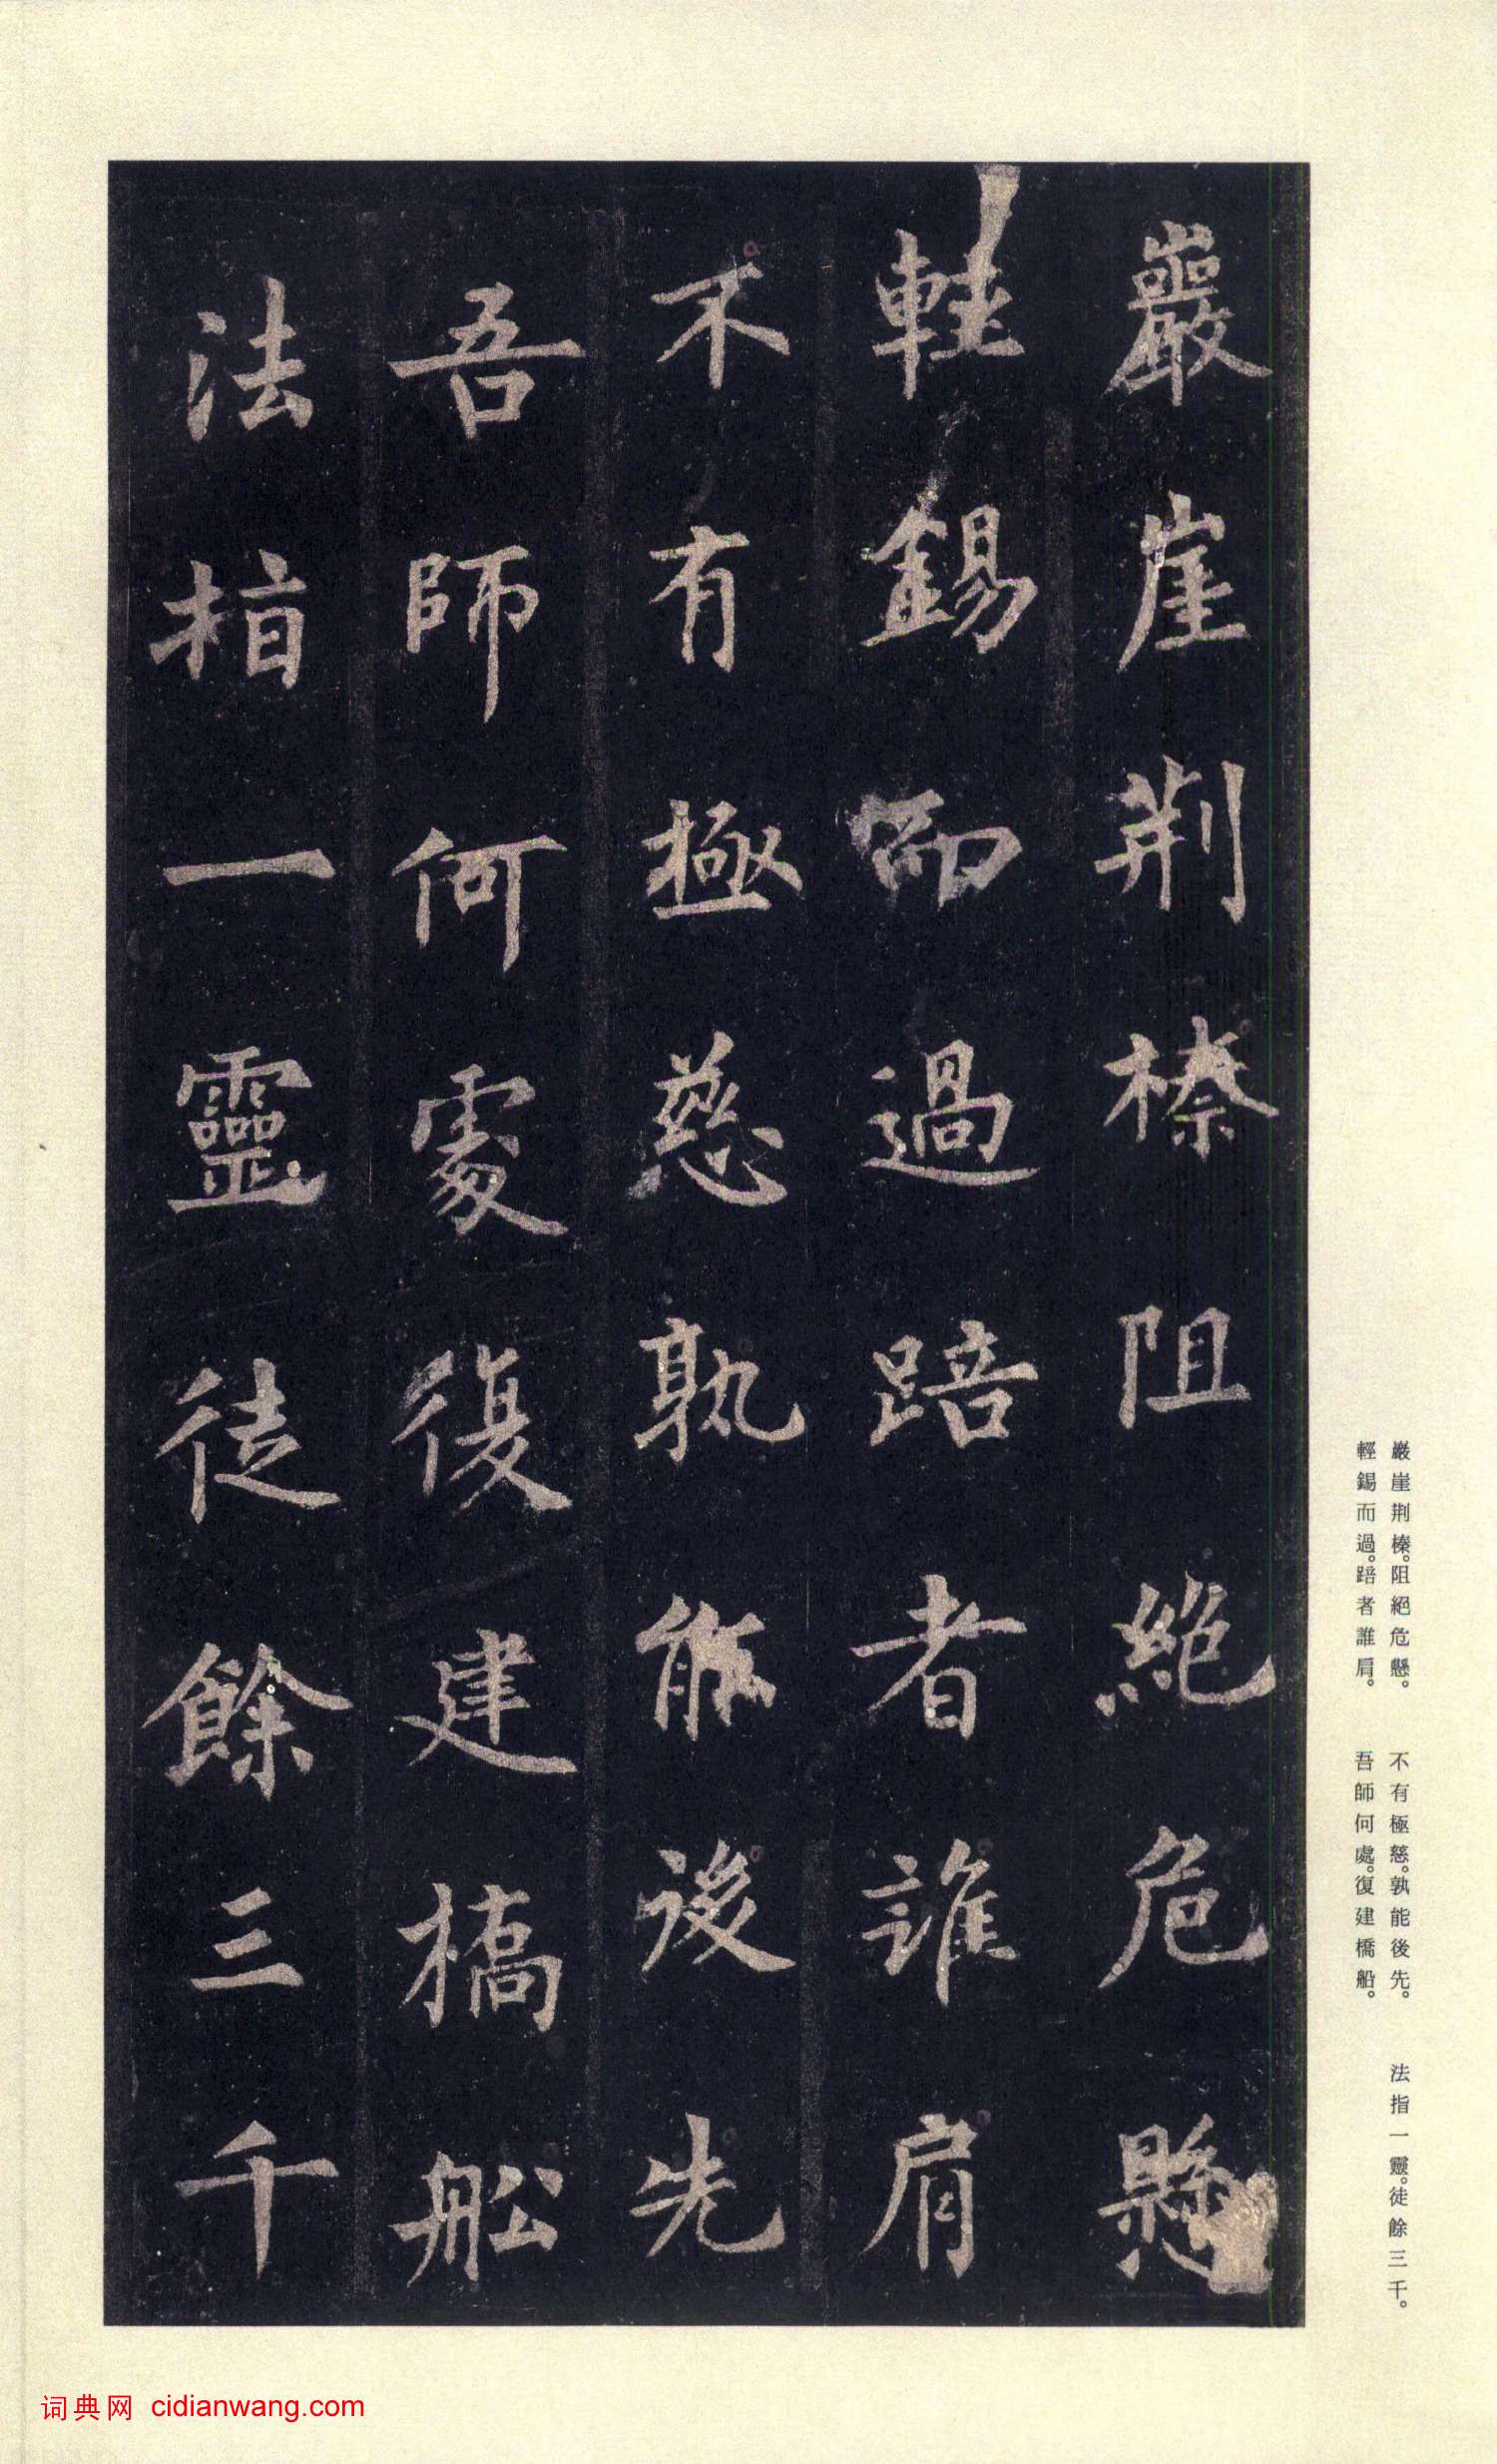 巖崖荆榛阻絕危懸
輕錫而過踣者誰肩
不有極慈孰能後先
吾師何處復建橋舩
法指一靈徒餘三千
巖崖荆榛。阻絕危懸。　不有極慈。孰能後先。　法指一靈。徒餘三千。
輕錫而過。踣者誰肩。　吾師何處。復建橋船。
词典网 cidianwang.com